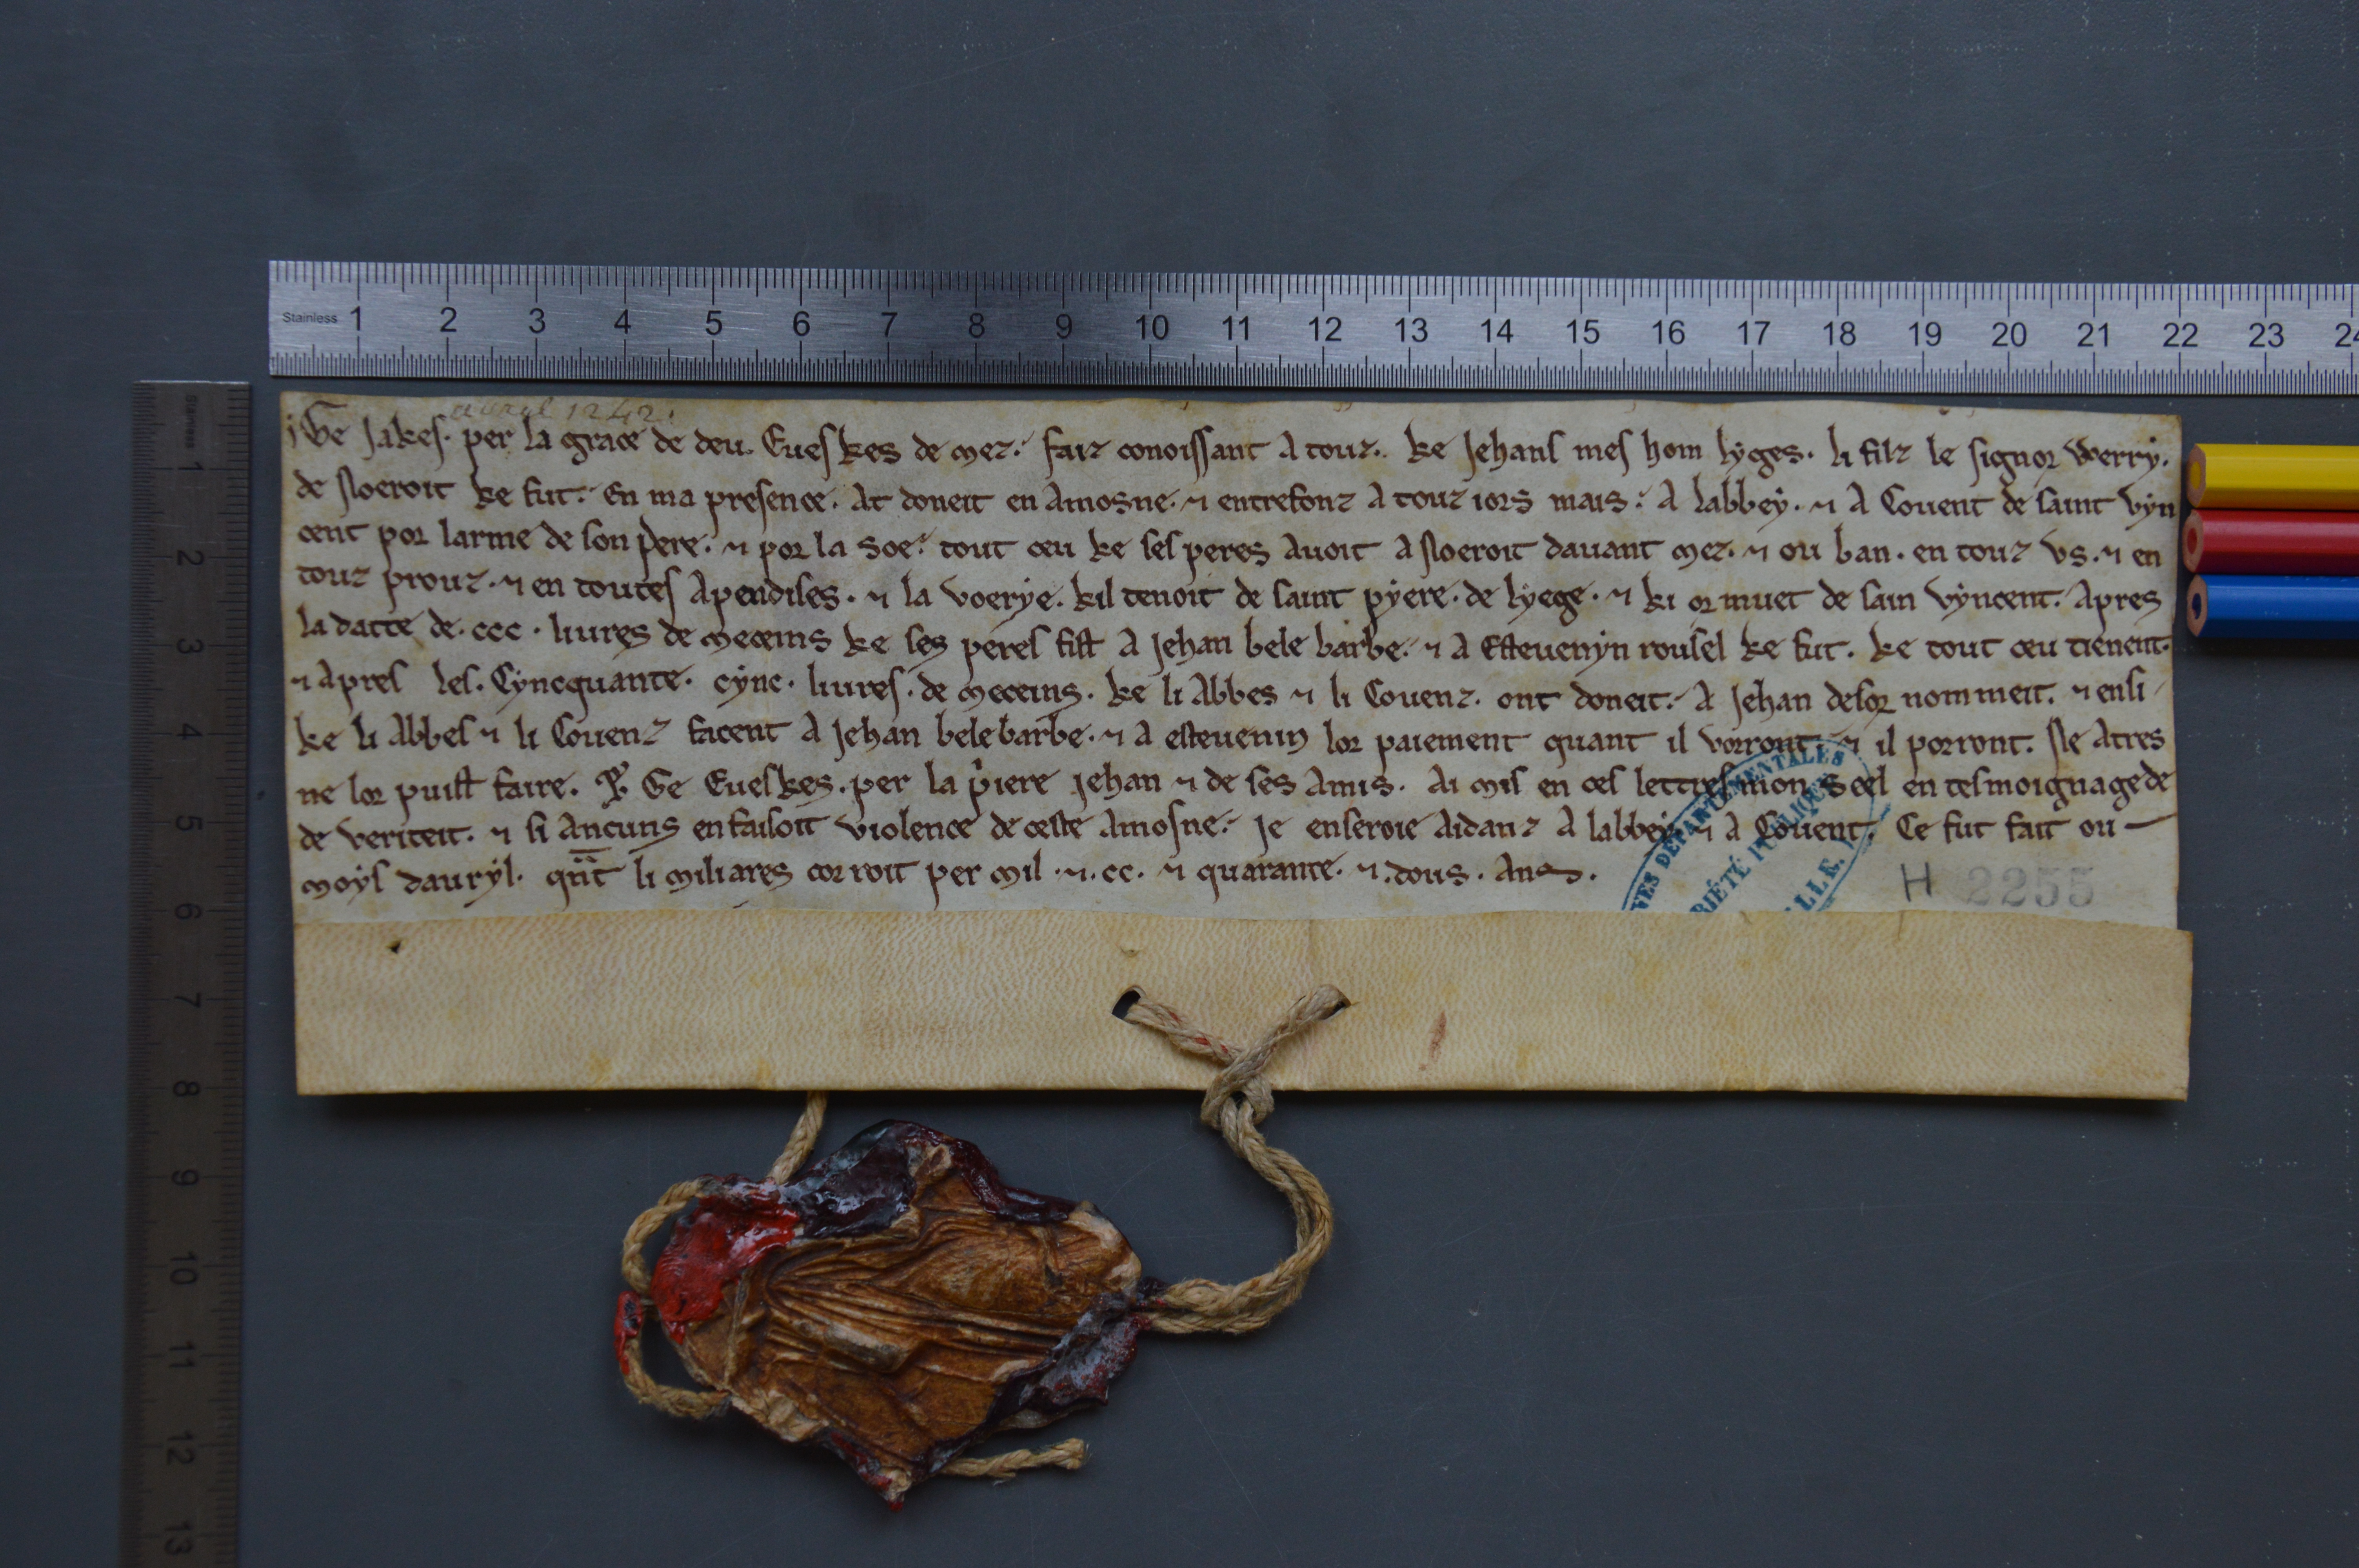 Stainless 1 2 3 4 5 6 7 8 9 10 11 12 13 14 15 16 17 18 19 20 21 22 23 24
Stainless 1 2 3 4 5 6 7 8 9 10 11 12 13
avril 1242.
Ge Jakes. per la grace de deu. Eueskes de mez. faiz conoissant a touz. ke Jehans mes hom lyges. li filz le signor Werry.
de Noeroit ke fut. En ma presence. At doneit en Amosne. ⁊ entrefonz a touz iors mais. A labbey. ⁊ A Couent de saint vyn
cent por larme de son pere. ⁊ por la soe. tout ceu ke ses peres Auoit a Noeroit dauant mez. ⁊ ou ban. en touz vs. ⁊ en
touz prouz. ⁊ en toutes Apendises. ⁊ la voerye. kil tenoit de saint pyere. de lyege. ⁊ ki or muet de sain vyncent. Apres
la datte de. ccc. liures de meceins ke ses peres fist A Jehan bele barbe. ⁊ a Esteuenyn rousel ke fut. ke tout ceu tienent.
⁊ apres les. Cyncquante. cync. liures. de meceins. ke li Abbes ⁊ li Couenz. ont doneit. A Jehan desor nommeit. ⁊ ensi
ke li Abbes ⁊ li Couenz facent A Jehan bele barbe. ⁊ a esteuenin lor paiement quant il vorront. ⁊ il porront. Ne Atres
ne lor puist faire. Ge Eueskes. per la piere Jehan ⁊ de ses Amis. Ai mis en ces lettres mon seel en tesmoignage de
de veriteit. ⁊ si Ancuns en faisoit violence de ceste Amosne. Je enseroie Aidanz A labbey. ⁊ a Couent. Ce fut fait ou
moys dauryl. qnt li miliares corroit per mil. ⁊. cc. ⁊ quarante. ⁊. dous. Ans.
H 2255